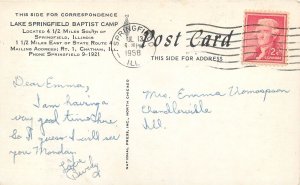 THIS SIDE FOR CORRESPONDENCE
LAKE SPRINGFIELD BAPTIST CAMP
LOCATED 4 1/2 MILES SOUTH OF
SPRINGFIELD, ILLINOIS
1 1/2 MILES EAST OF STATE ROUTE 4
MAILING ADDRESS: R. 1, CHATHAM, ILL.
PHONE SPRINGFIELD 9-1921
Dear Emma,
I am having a
very good time here
So I guess I will see
you Monday.
Love
Beverly
SPRINGFIELD
1958
ILL.
Post Card
THIS SIDE FOR ADDRESS
2¢
Mrs. Emma Thompson
Chandlerville
Ill.